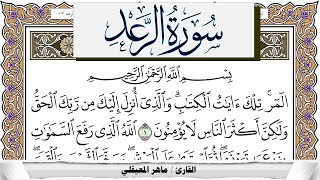 سُورَةُ الرَّعْدِ
بِسْمِ اللَّهِ الرَّحْمَٰنِ الرَّحِيمِ
الٓمٓر ۚ تِلْكَ ءَايَٰتُ الْكِتَٰبِ ۗ وَالَّذِىٓ أُنزِلَ إِلَيْكَ مِن رَّبِّكَ الْحَقُّ
وَلَٰكِنَّ أَكْثَرَ النَّاسِ لَا يُؤْمِنُونَ ١ اللَّهُ الَّذِى رَفَعَ السَّمَٰوَٰتِ
القارئ / ماهر المعيقلي